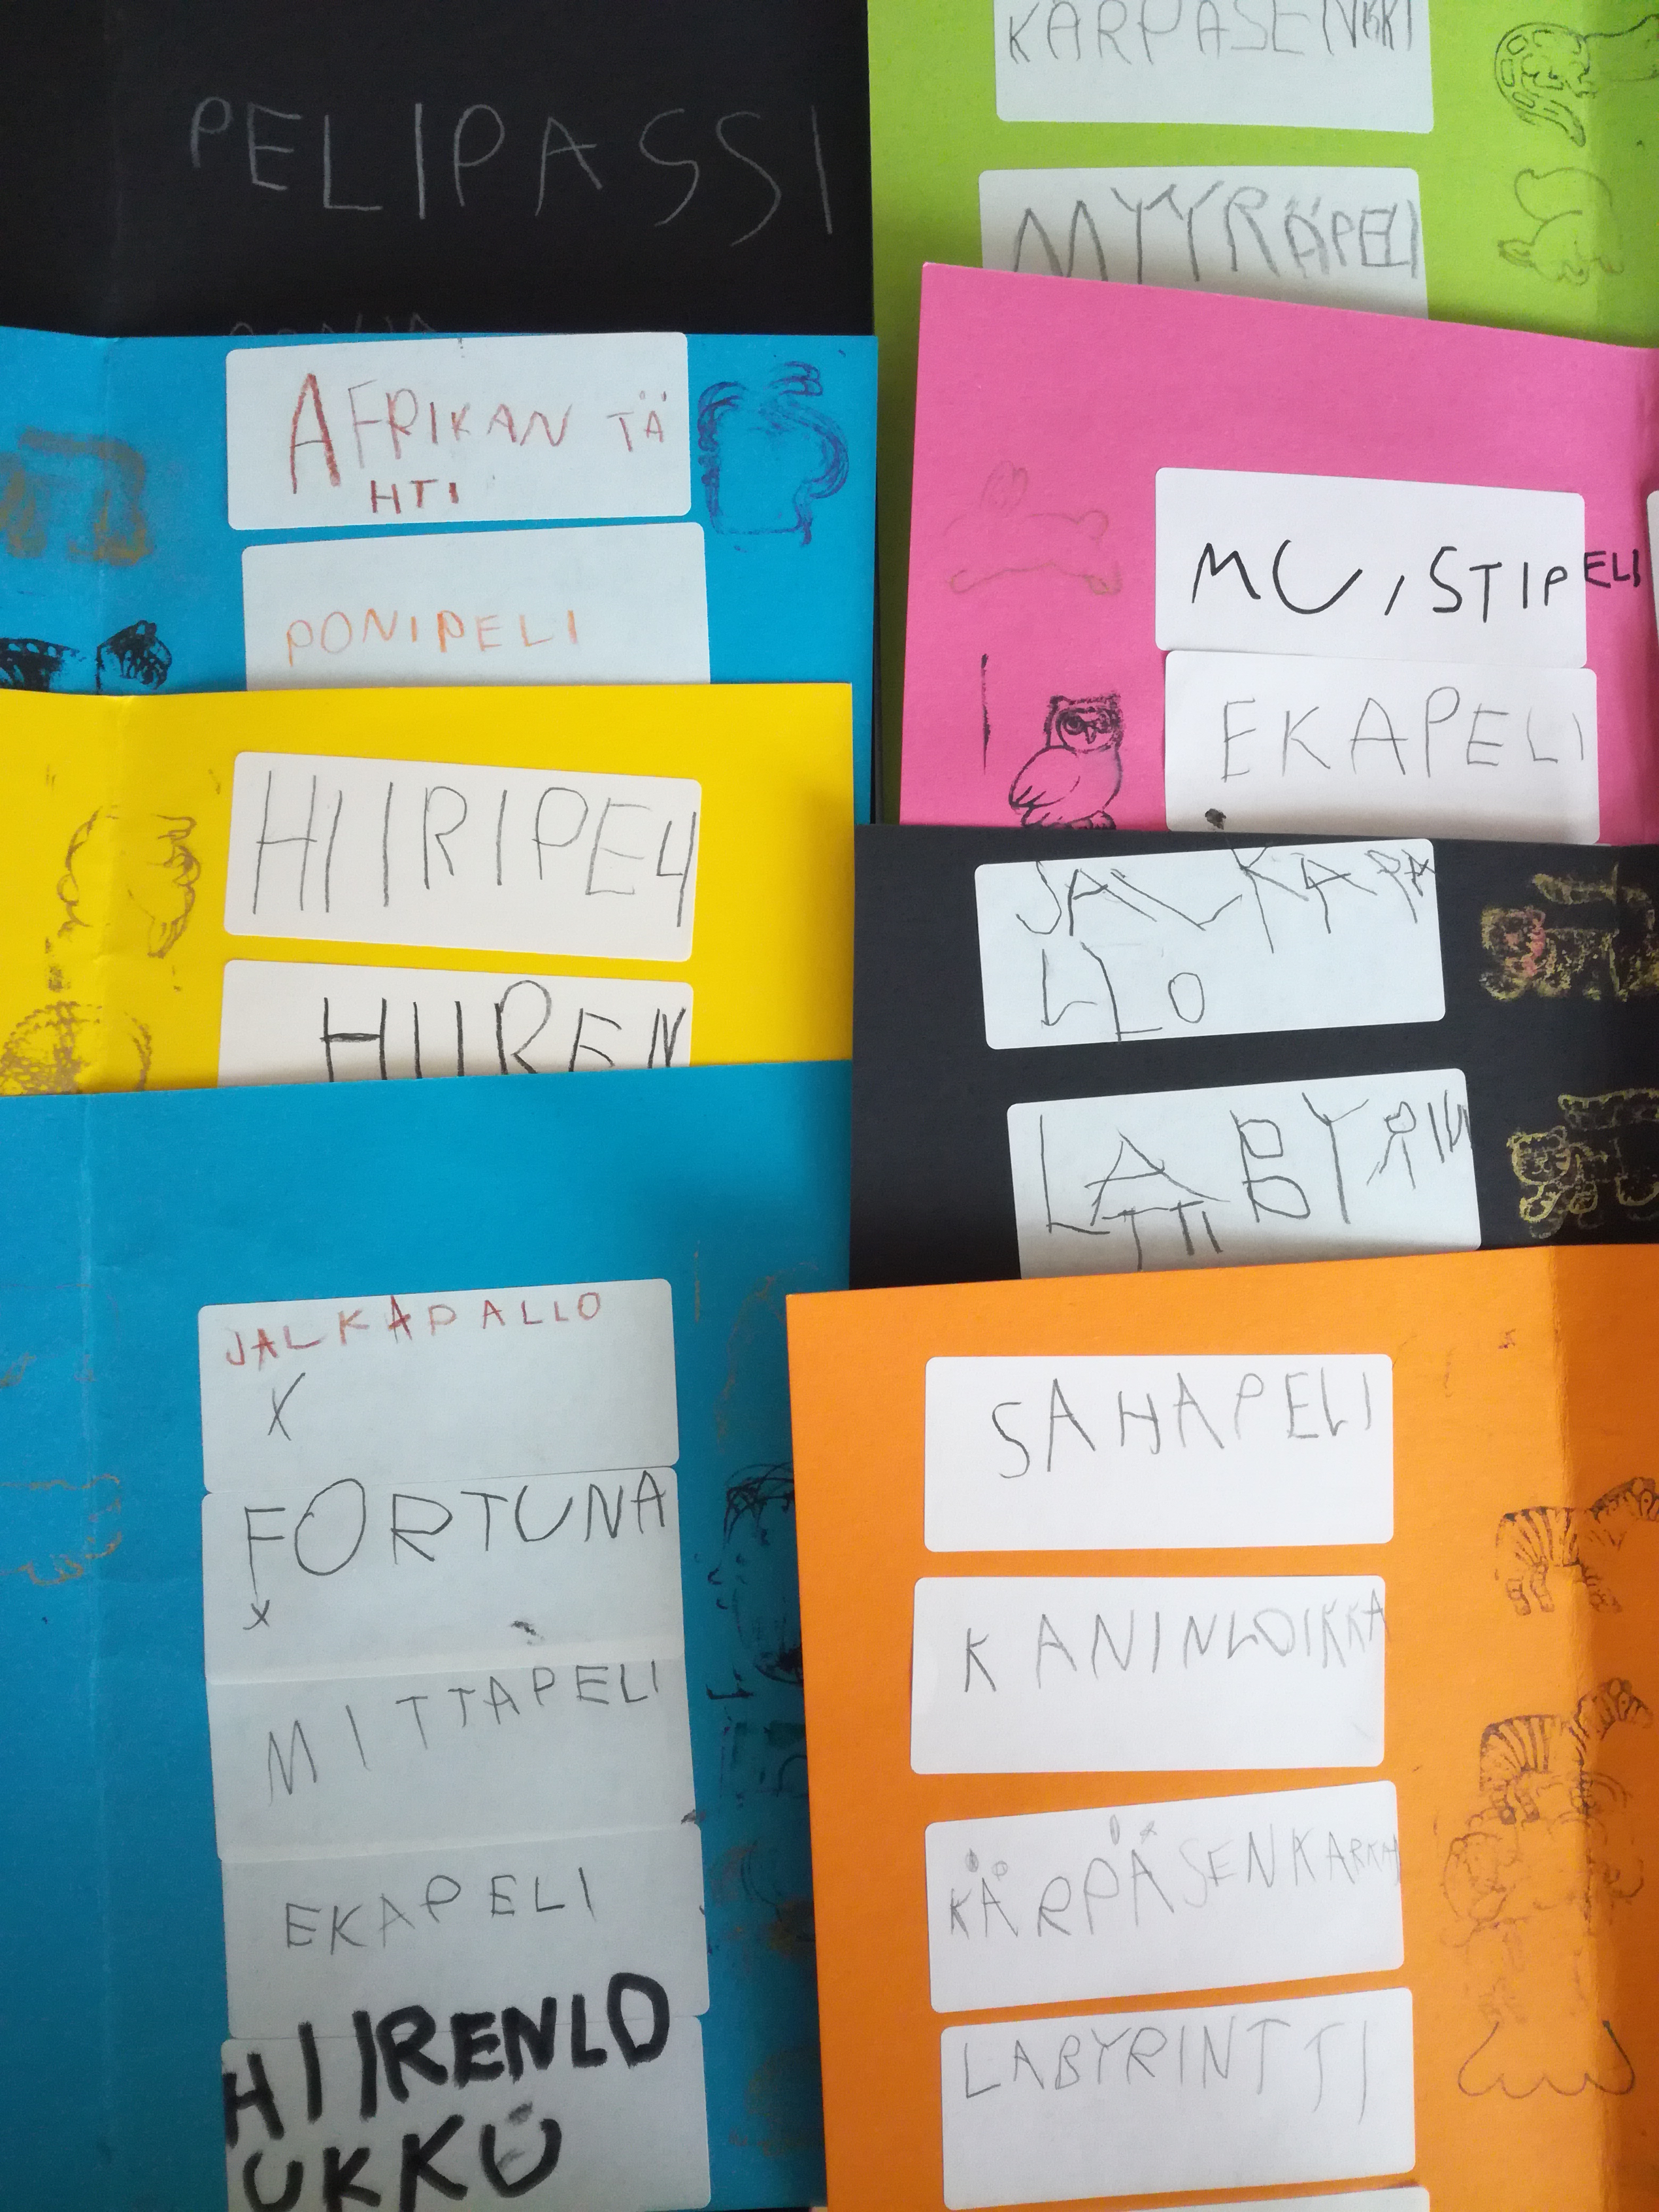 PELIPASSI
AFRIKAN TÄ
HTI
PONIPELI
HIIRIPELI
HIIREN
JALKAPALLO
X
FORTUNA
x
MITTAPELI
EKAPELI
HIIRENLO
UKKU
MYYRÄPELI
MUISTIPELI
EKAPELI
JALKAPA
LLO
LABYRIN
TTI
SAHAPELI
KANINLOIKKA
KÄRPÄSENKARKKI
LABYRINTTI